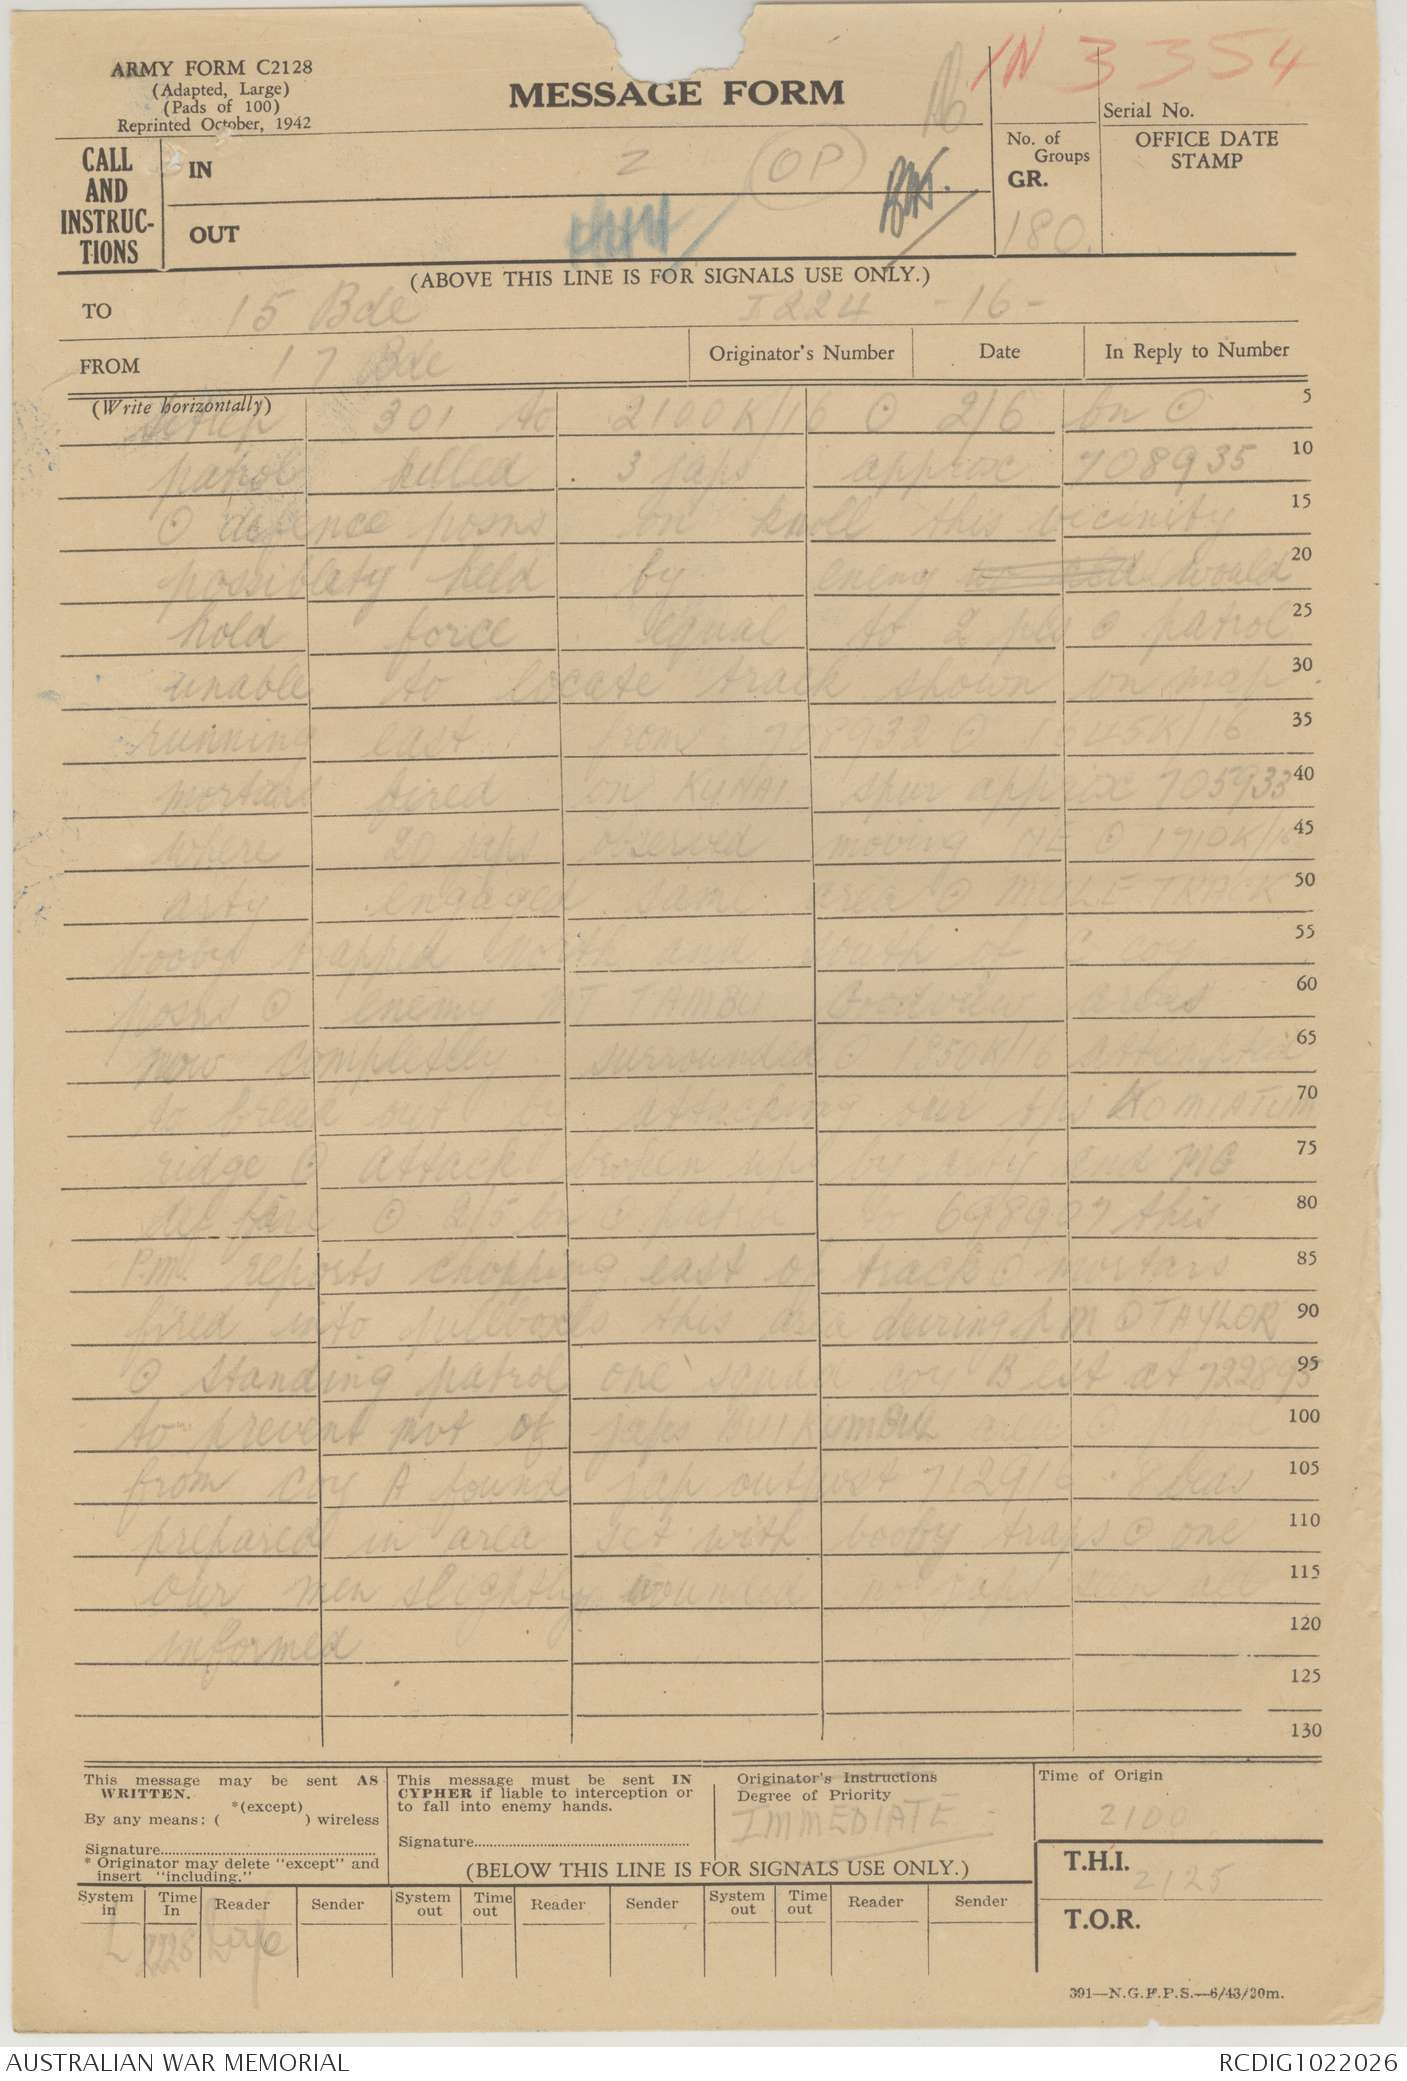 IN 3354
ARMY FORM C2128
(Adapted, Large)
(Pads of 100)
Reprinted October, 1942
MESSAGE FORM
Serial No.
CALL AND INSTRUC-TIONS
IN
OUT
Z
(OP)
No. of Groups
GR.
180.
OFFICE DATE STAMP
(ABOVE THIS LINE IS FOR SIGNALS USE ONLY.)
TO 15 Bde I 224 -16-
FROM 17 Bde
Originator's Number
Date
In Reply to Number
(Write horizontally)
Sitrep 301 to 2100K/16 ⊙ 2/6 bn ⊙ 5
patrol killed 3 japs approx 708935 10
⊙ defence posns on knoll this vicinity 15
held by enemy would 20
hold force equal to 2 pls ⊙ patrol 25
unable to locate track shown on map 30
running east from 708932 ⊙ 1645K/16 35
mortars fired on KUNAI spur approx 705933 40
where 20 japs observed moving NE ⊙ 1710K/16 45
arty engaged same area ⊙ MULE TRACK 50
booby trapped north and south of C coy 55
posns ⊙ enemy MT TAMBU Goodview areas 60
now completely surrounded ⊙ attempted 65
to break out by attacking our tps KOMIATUM 70
ridge ⊙ attack broken up by arty and MG 75
def fire ⊙ 2/5 bn ⊙ patrol to 698907 this 80
P.M. reports chopping east of track ⊙ mortars 85
fired into pillboxes this area during P M ⊙ TAYLOR 90
⊙ standing patrol one squad coy B est at 722895 95
to prevent mvt of japs BUIKUMBUL area ⊙ patrol 100
from coy A found jap outpost 712916 . 8 beds 105
prepared in area set with booby traps ⊙ one 110
our men slightly wounded no japs seen all 115
informed 120
125
130
This message may be sent AS WRITTEN.
*(except)
By any means: ( ) wireless
Signature
* Originator may delete "except" and insert "including."
This message must be sent IN CYPHER if liable to interception or to fall into enemy hands.
Signature
Originator's Instructions
Degree of Priority
IMMEDIATE
Time of Origin
2100
(BELOW THIS LINE IS FOR SIGNALS USE ONLY.)
T.H.I. 2125
T.O.R.
System in
Time In
Reader
Sender
System out
Time out
Reader
Sender
System out
Time out
Reader
Sender
L 2228
391—N.G.F.P.S.—6/43/20m.
AUSTRALIAN WAR MEMORIAL
RCDIG1022026